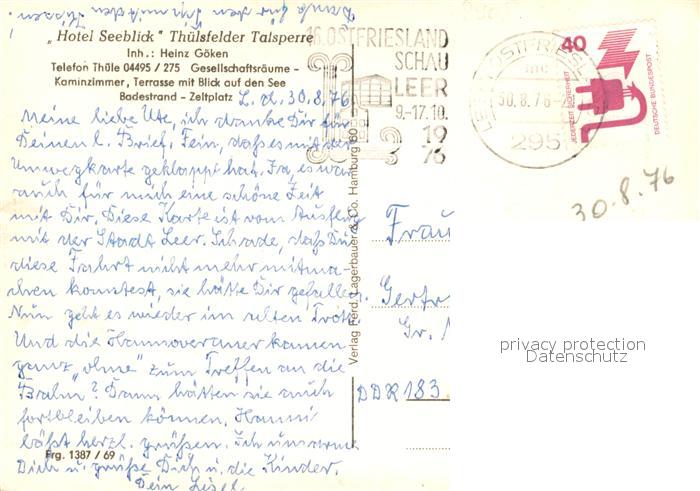 Danke für den
"Hotel Seeblick" Thülsfelder Talsperre
Inh.: Heinz Göken
Telefon Thüle 04495 / 275 Gesellschaftsräume -
Kaminzimmer, Terrasse mit Blick auf den See
Badestrand - Zeltplatz
L. d. 30.8.76
Meine liebe Ute, ich danke Dir für
Deinen l. Brief. Fein, daß es mit der
Umwegkarte geklappt hat. Ja, es war
auch für mich eine schöne Zeit
mit Dir. Diese Karte ist vom Ausflug
mit der Stadt Leer. Schade, daß Du
diese Fahrt nicht mehr mitma-
chen konntest, sie hätte Dir gefallen.
Nun geht es wieder im alten Trott.
Und die Hannoveraner kamen
ganz "ohne" zum Treffen an die
Bahn? Dann hätten sie auch
fortbleiben können. Hanni
läßt herzl. grüßen. Ich umarme
Dich u. grüße Dich u. die Kinder.
Dein Liesel.
Frg. 1387 / 69
Verlag Ferd. Lagerbauer & Co. Hamburg 50
16. OSTFRIESLAND
SCHAU
LEER
9.-17.10.
19
76
30.8.76
295
40
JEDERZEIT SICHERHEIT
DEUTSCHE BUNDESPOST
30.8.76
Frau
Gertr
Gr.
DDR 183
privacy protection
Datenschutz